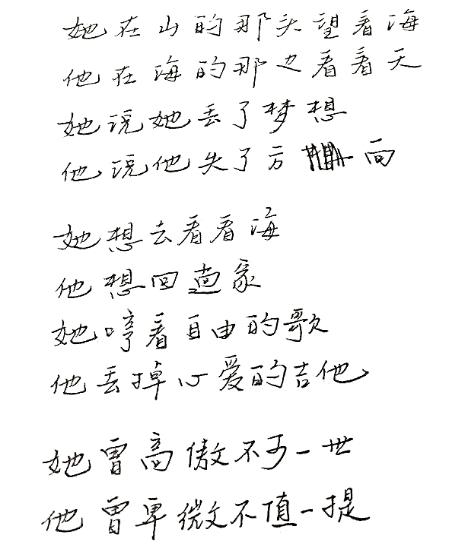 她在山的那头望着海
他在海的那边看着天
她说她丢了梦想
他说他失了方向
她想去看看海
他想回趟家
她哼着自由的歌
他丢掉心爱的吉他
她曾高傲不可一世
他曾卑微不值一提